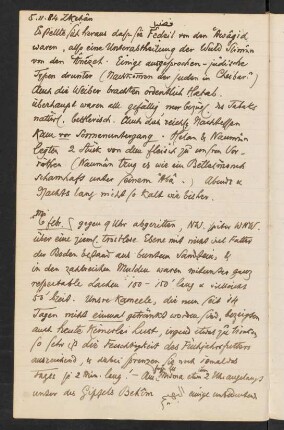 5. II. 84 Ekhân
Es stellte sich heraus dass sie Fedeil von den ʿAwâgid
waren, also eine Unterabtheilung der Wuld Slimân
von den ʿEnezeh. Einige ausgesprochen jüdische
Typen drunter (Nachkommen der Juden in Cheibar?)
Auch die Weiber brachten ordentlich Hatab.
Überhaupt waren alle gefällig nur bezügl. des Tabaks
natürl. bettlerisch. Auch das reichste Nachtessen
kam vor Sonnenuntergang. & Naumân
legten 2 Stück von dem fleisch zu unsern Vor-
räthen (Naumân trug es wie ein Bettelmönch
schamhaft unter seinem ʿAbâ). Abends &
Nachts lang nicht so kalt wie bisher.
6 febr. gegen 9 Uhr abgeritten, NW. später WNW.
über eine ziemlich trostlose Ebene mit nicht viel Futter
der Boden bestand aus buntem Sandstein, &
in den zahlreichen Mulden waren mitunter ganz
respectable Lachen 100 - 150' lang &
50' breit. Unsre Kameele, die nun seit 14
Tagen nicht einmal getränkt worden sind, bezeigten
auch heute keinerlei Lust, irgend etwas zu trinken,
so sehr ist die Feuchtigkeit des Frühjahrsfutters
ausreichend, & dabei brunzen sie noch
Tages je 2 Min. lang! - 2 Uhr angelangt
unter des Gipfels Behîm einige